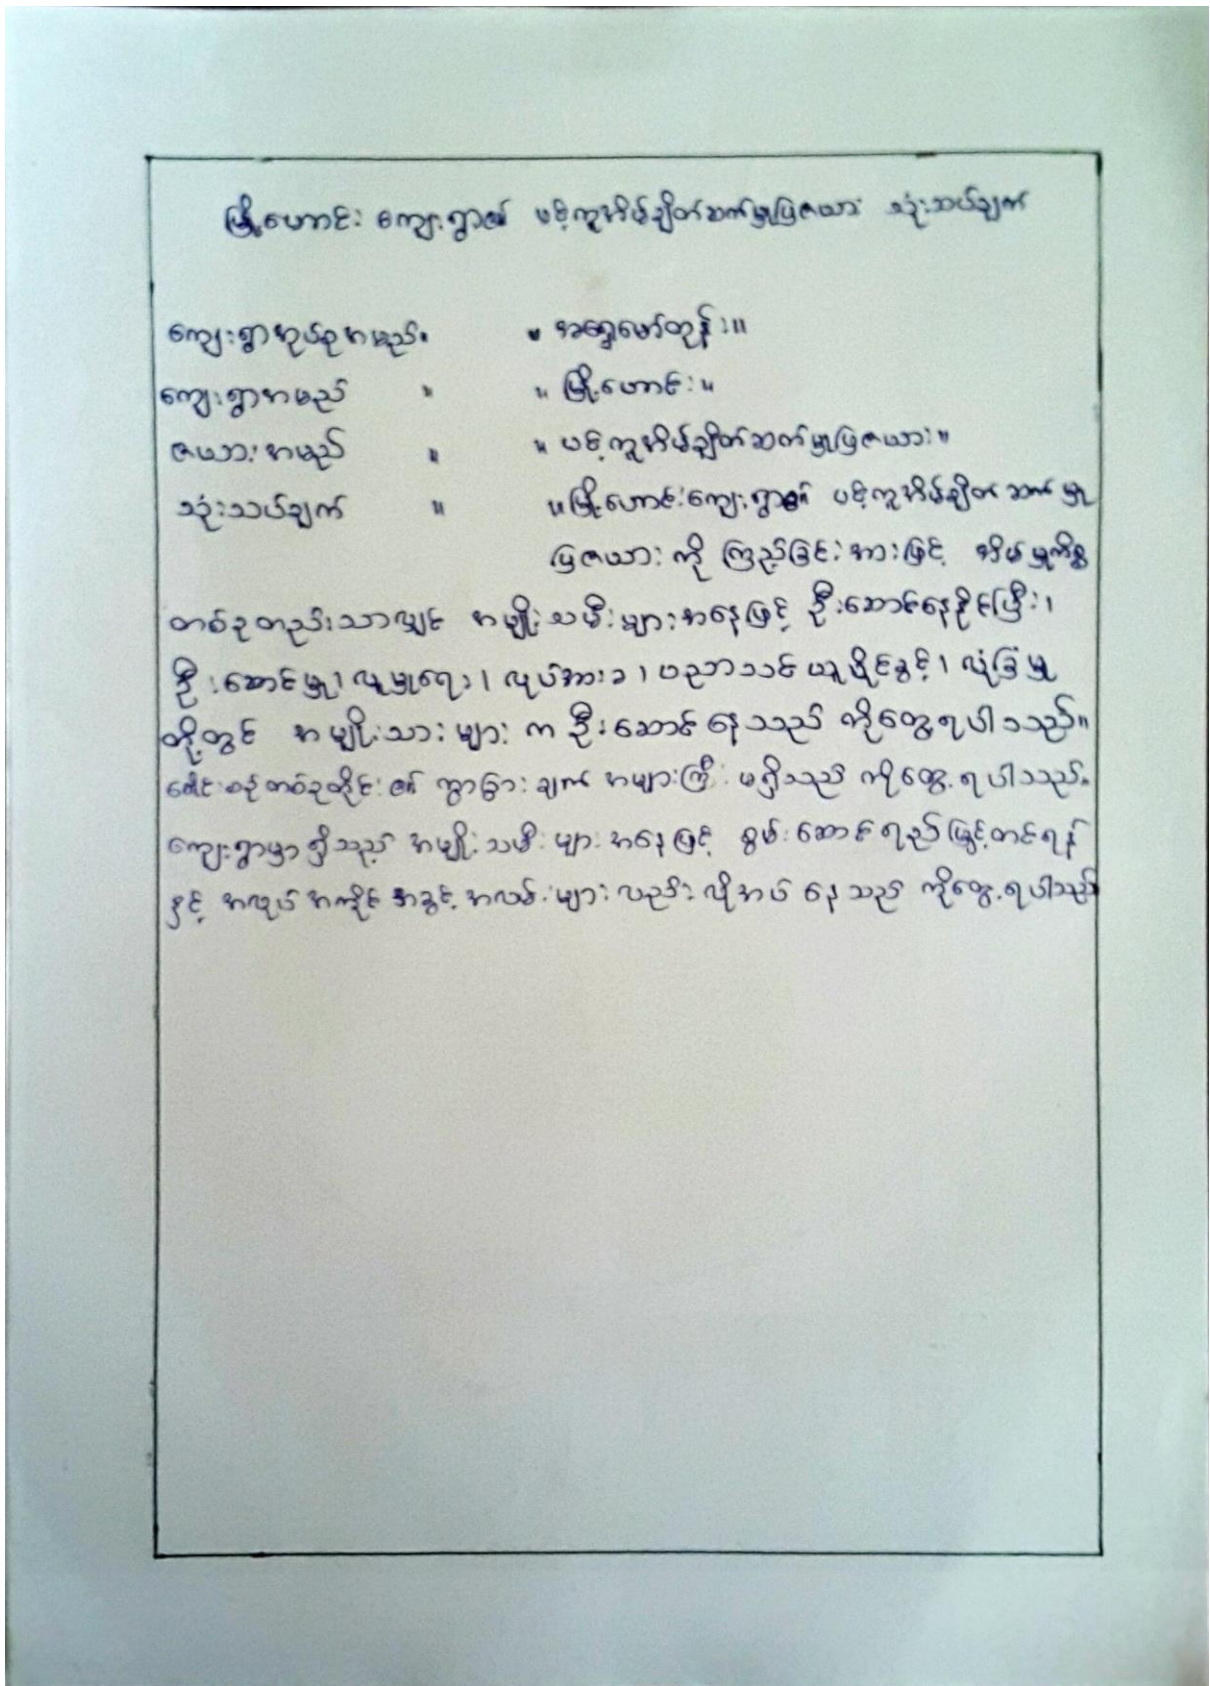 မြို့ဟောင်း ကျေးရွာ၏ ပင့်ကူအိမ်ချိတ်ဆက်မှုပြဇယား သုံးသပ်ချက်
ကျေးရွာအုပ်စုအမည်။ ။ အရှေ့မော်တုန်း။
ကျေးရွာအမည် ။ ။ မြို့ဟောင်း။
ဇယားအမည် ။ ။ ပင့်ကူအိမ်ချိတ်ဆက်မှုပြဇယား။
သုံးသပ်ချက် ။ ။ မြို့ဟောင်းကျေးရွာ၏ ပင့်ကူအိမ်ချိတ်ဆက်မှု
ပြဇယား ကို ကြည့်ခြင်းအားဖြင့် အိမ်မှုကိစ္စ
တစ်ခုတည်းသာလျှင် အမျိုးသမီးများအနေဖြင့် ဦးဆောင်နေနိုင်ပြီး၊
ဦးဆောင်မှု၊ လူမှုရေး၊ လုပ်အားခ၊ ပညာသင်ယူပိုင်ခွင့်၊ လုံခြုံမှု
တို့တွင် အမျိုးသားများက ဦးဆောင်နေသည် ကိုတွေ့ရပါသည်။
ခေါင်းစဉ်တစ်ခုတိုင်း၏ ကွာခြားချက် အများကြီး မရှိသည် ကိုတွေ့ရပါသည်။
ကျေးရွာမှာရှိသည့် အမျိုးသမီးများအနေဖြင့် စွမ်းဆောင်ရည်မြှင့်တင်ရန်
နှင့် အလုပ်အကိုင်အခွင့်အလမ်းများလည်း လိုအပ်နေသည် ကိုတွေ့ရပါသည်